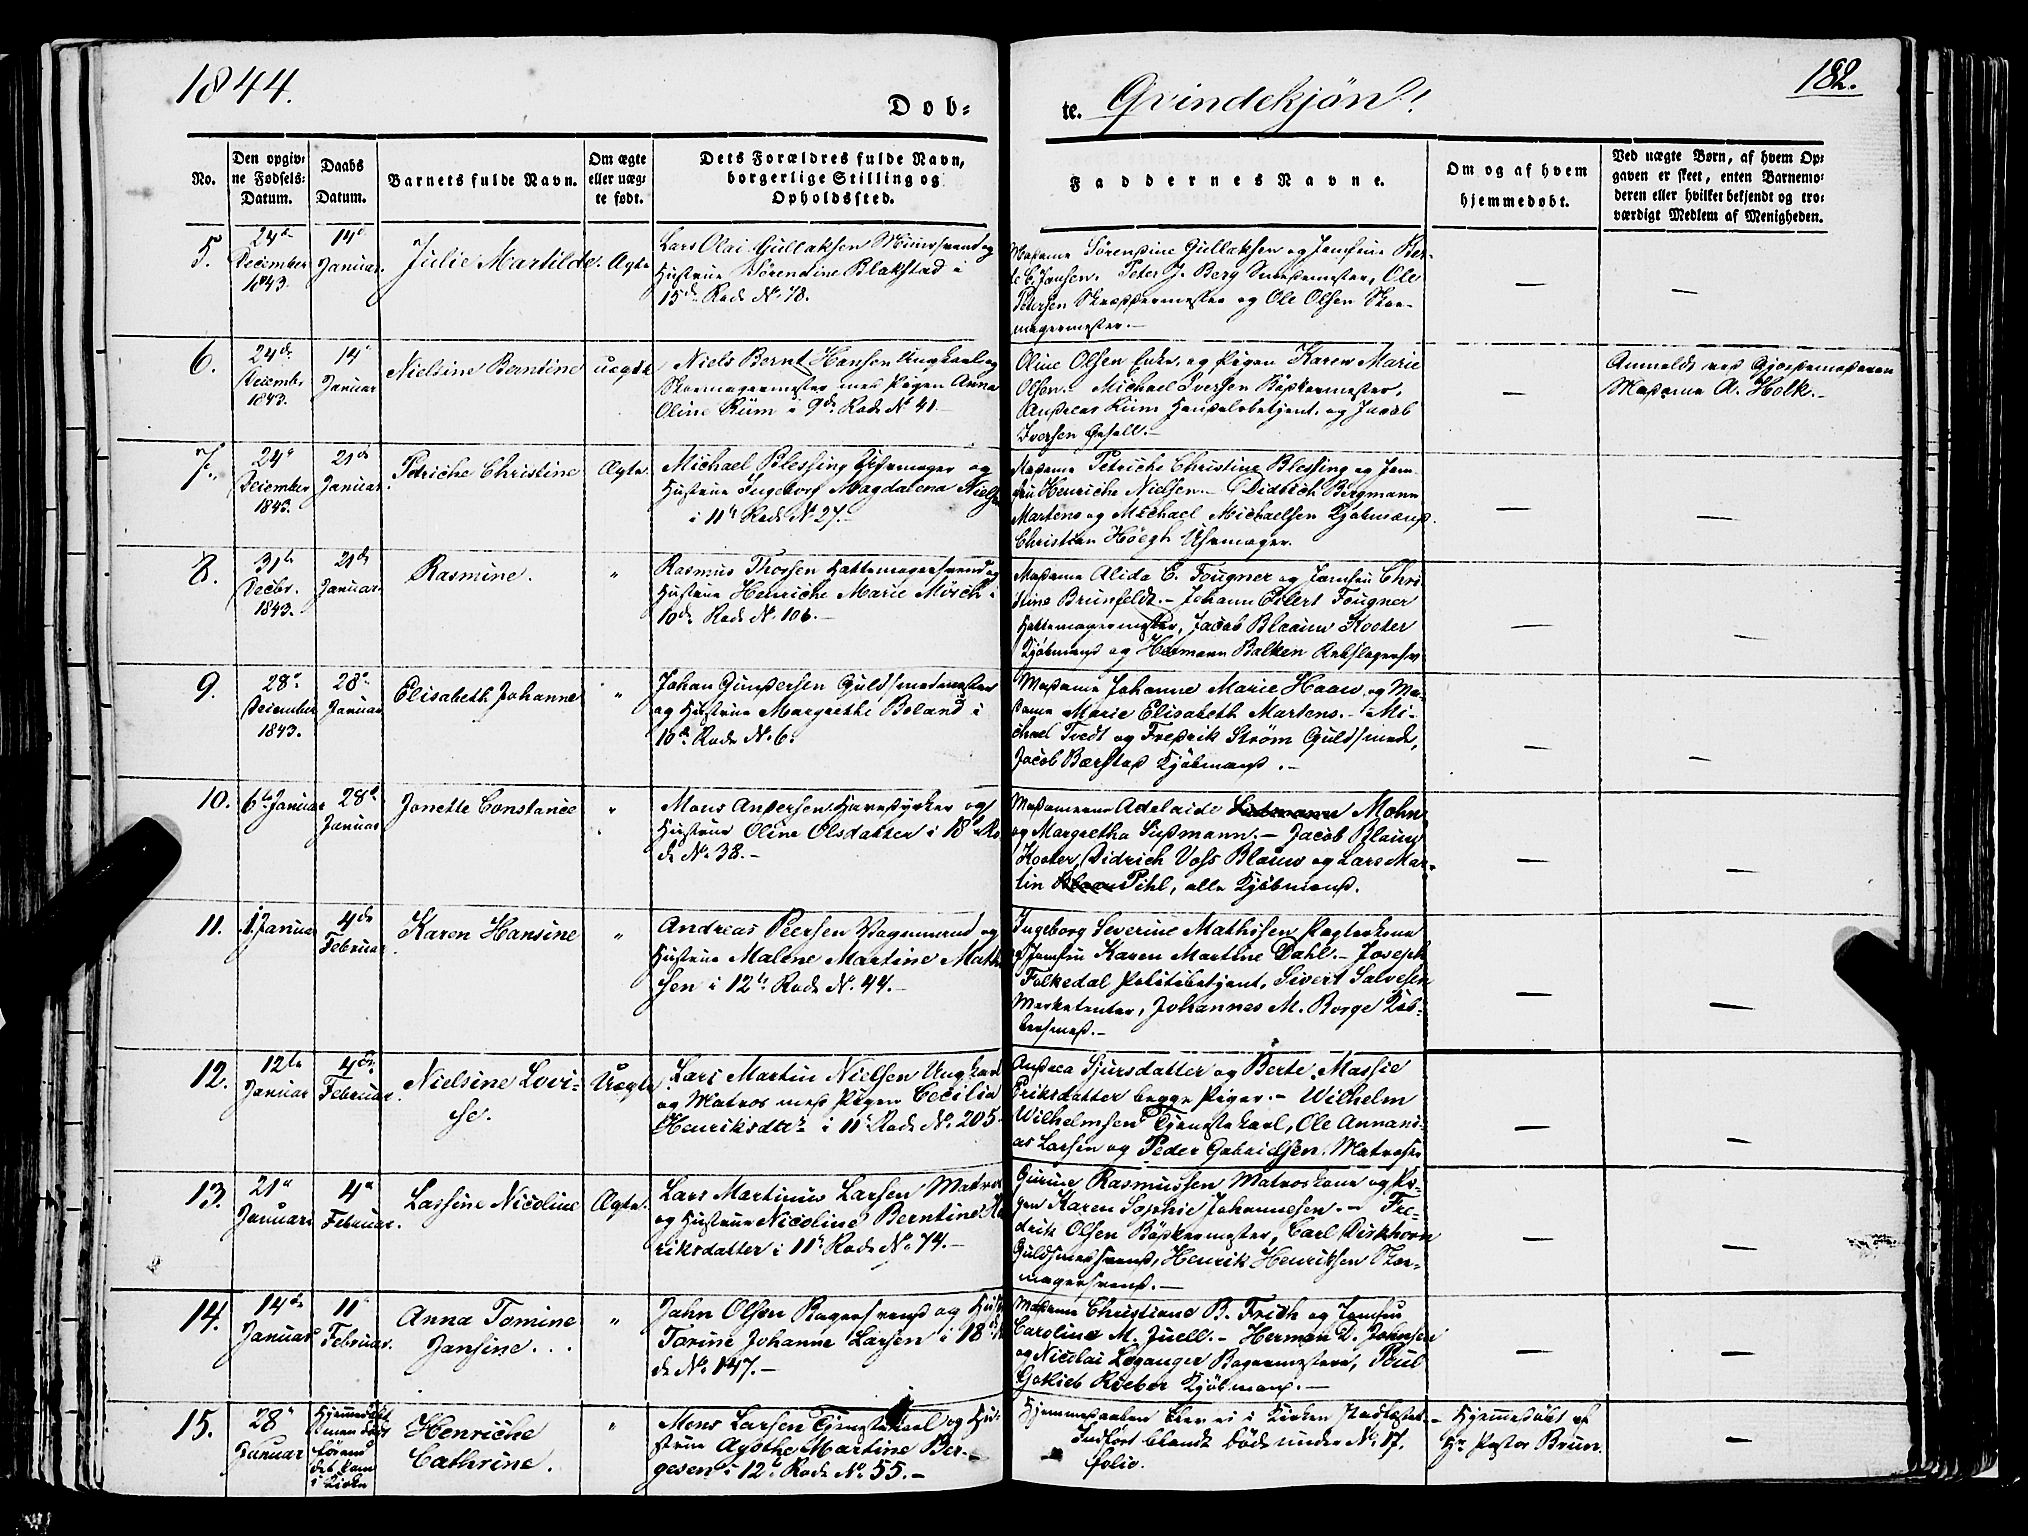 1844.
182.
Døb-
te. Qvindekjøn!
No.
Den opgiv-
ne Fødsels-
Datum.
Daabs
Datum.
Barnets fulde Navn.
Om ægte
eller uæg-
te født.
Dets Forældres fulde Navn,
borgerlige Stilling og
Opholdssted.
Faddernes Navne.
Om og af hvem
hjemmedøbt.
Ved uægte Børn, af hvem Op-
gaven er skeet, enten Barnemo-
deren eller hvilket bekjendt og tro-
værdigt Medlem af Menigheden.
5.
24de
December
1843.
14de
Januar.
Julie Martilde.
Ægte
Lars Olai Gullaksen Muursvend og
Hustrue Sørendine Blakstad i
15de Rode No. 78.
Madame Sørensine Gullaksen og Jomfrue Ber-
te C. Jansen. Peter J. Berg Smedemester, Ole
Petersen Skræddermester og Ole Olsen Skoe-
magermester.-
—
—
6.
24de
Decembr
1843.
14
Januar
Nielsine Berntine
uægte
Niels Bernt Hansen Ungkarl og
Skoemagermester med Pigen Anna
Oline Rüm i 9de Rode No 41.
Oline Olsen Enke, og Pigen Karen Marie
Olsen. Michael Iversen Bødkermester,
Andreas Rüm Handelsbetjent, og Jacob
Iversen Gesell.-
—
Anmeldt ved Gjordemoderen
Madame A. Holk.-
7.
24
December
1843.
21de
Januar
Petriche Christine
Ægte.
Michael Blessing Uhrmager og
Hustrue Ingeborg Magdalena Niels
i 11te Rode No. 27.-
Madame Petriche Christine Blessing og Jom-
fru Henriche Nielsen.- Didrich Bergmann
Martens og Michael Michaelsen Kjøbmænd.
Christian Höegh Uhrmager.
—
—
8.
31te
Decbr.
1843.
21de
Januar.
Rasmine.
"
Rasmus Thorsen Hattemagersvend og
Hustrue Henriche Marie Mörch i
10de Rode No. 106.-
Madame Alida C. Fougner og Jomfru Chri-
stine Brunfeldt.- Johann Eilert Fougner
Hattemagermester, Jacob Blaauw Kooter
Kjøbmand og Hermann Balken Rebslagersv.
—
—
9.
28
December
1843.
28
Januar
Elisabeth Johanne
"
Johan Gundersen Guldsmedmester
og Hustrue Margrethe Boland i
10de Rode No. 6.
Madame Johanne Marie Haau, og Ma-
dame Marie Elisabeth Martens.- Mi-
chael Tvedt og Fredrik Strøm Guldsmede,
Jacob Børstad Kjøbmand.-
—
—
10.
6te Januar
28de
Januar
Jonette Constance
"
Mons Andersen Havedyrker og
Hustrue Oline Olsdatter i 18de Ro-
de No. 38.-
Madamerne Adelaide Mohn
og Margretha Sußmann.- Jacob Blauw
Kooter, Didrich Voss Blauw og Lars Mar-
tin Pihl, alle Kjøbmænd.
—
—
11.
1 Januar
4de
Februar
Karen Hansine
"
Andreas Peersen Vognmand og
Hustrue Malene Martine Math
sen i 12te Rode No. 44.-
Ingeborg Severine Mathisen
og Jomfru Karen Martine Dahl.- Joseph
Folkedal Politibetjent, Sivert Salvesen
Marketenter, Johannes M. Borge Kob-
bersmed.-
—
—
12.
12te
Januar
4de
Februar
Nielsine Lovi-
se.
Uægte
Lars Martin Nielsen Ungkarl
og Matros med Pigen Cecilia
Henriksdtr i 11te Rode No. 205
Andrea Sjursdatter og Berte Massie
Eriksdatter begge Piger.- Wilhelm
Wilhelmsen Tjenestekarl, Ole Annani-
as Larsen og Peder Gabrielsen Matroser
—
—
13.
21
Januari
4
Februar.
Lassine Nicoline
Ægte.
Lars Martinus Larsen Matros
og Hustrue Nicoline Berntine He
riksdatter i 11te Rode No. 74.-
Gurine Rasmussen Matroskone og Pi-
gen Karen Sophie Johannesen.- Fre-
drik Olsen Bødkermester, Carl Dirkhorn
Guldsmedsvend, Henrik Henriksen Skoe-
magersvend.-
—
—
14.
14de
Januar
11
Februar.
Anna Tomine
Jansine...
"
Jahn Olsen Bagersvend og Hust
Torine Johanne Larsen i 18de
de No. 147.-
Madame Christiane B. Frich og Jomfru
Caroline M. Juell.- Herman D. Johnsen
og Nicolai Leganger Bagermestere, Poul
Gotlieb Rieber Kjøbmand.-
—
—
15.
28
Januar
Hjemmedøbt
men død
førend
det kom
i Kirken
Henriche
Cathrine.
"
Mons Larsen Tjenestekarl og Hu-
strue Agothe Martine Ber-
gesen i 12te Rode No. 55.-
Hjemmedaaben blev ei i Kirken stadfæstet.-
Indført blandt døde under No. 17.
folio.
Hjemmedøbt af
Hr. Pastor Brun.
—